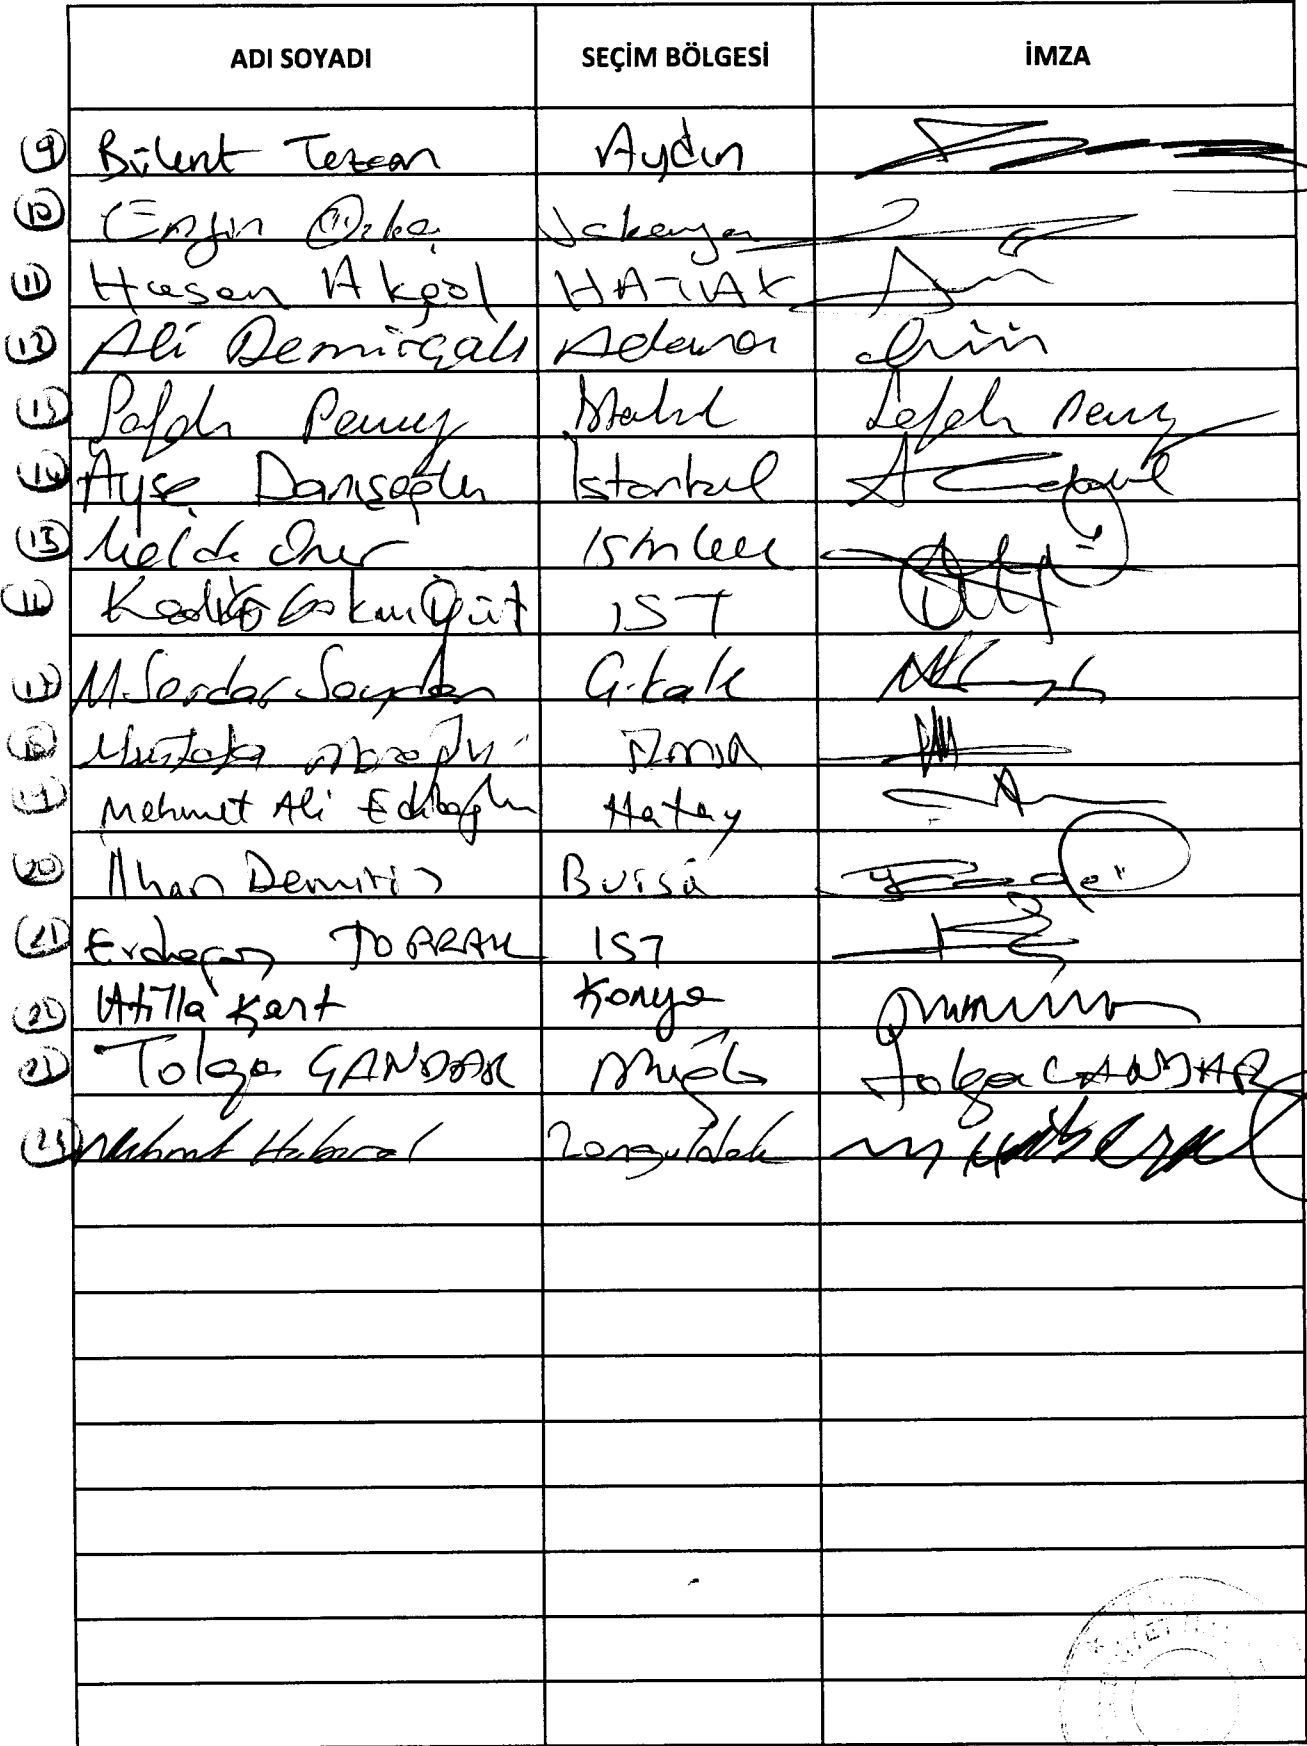 ADI SOYADI SEÇİM BÖLGESİ İMZA
9 Bülent Tezcan Aydın
10 Engin Özkoç Sakarya
11 Hasan Akgöl HATAY
12 Ali Demirçalı Adana
Safak Pavey İstanbul Safak Pavey
14 Ayşe Danışoğlu İstanbul
15 Melda Onur İstanbul
Kadir Gökmen Öğüt İST
17 M. Serdar Soyda Ç.kale
18 Mustafa Moroğlu İZMİR
19 Mehmet Ali Ediboğlu Hatay
20 İlhan Demiröz Bursa
21 Erdoğan TOPRAK İST
22 Atilla Kart Konya
Tolga ÇANDAR Muğla Tolga ÇANDAR
Mehmet Haberal Zonguldak M Haberal